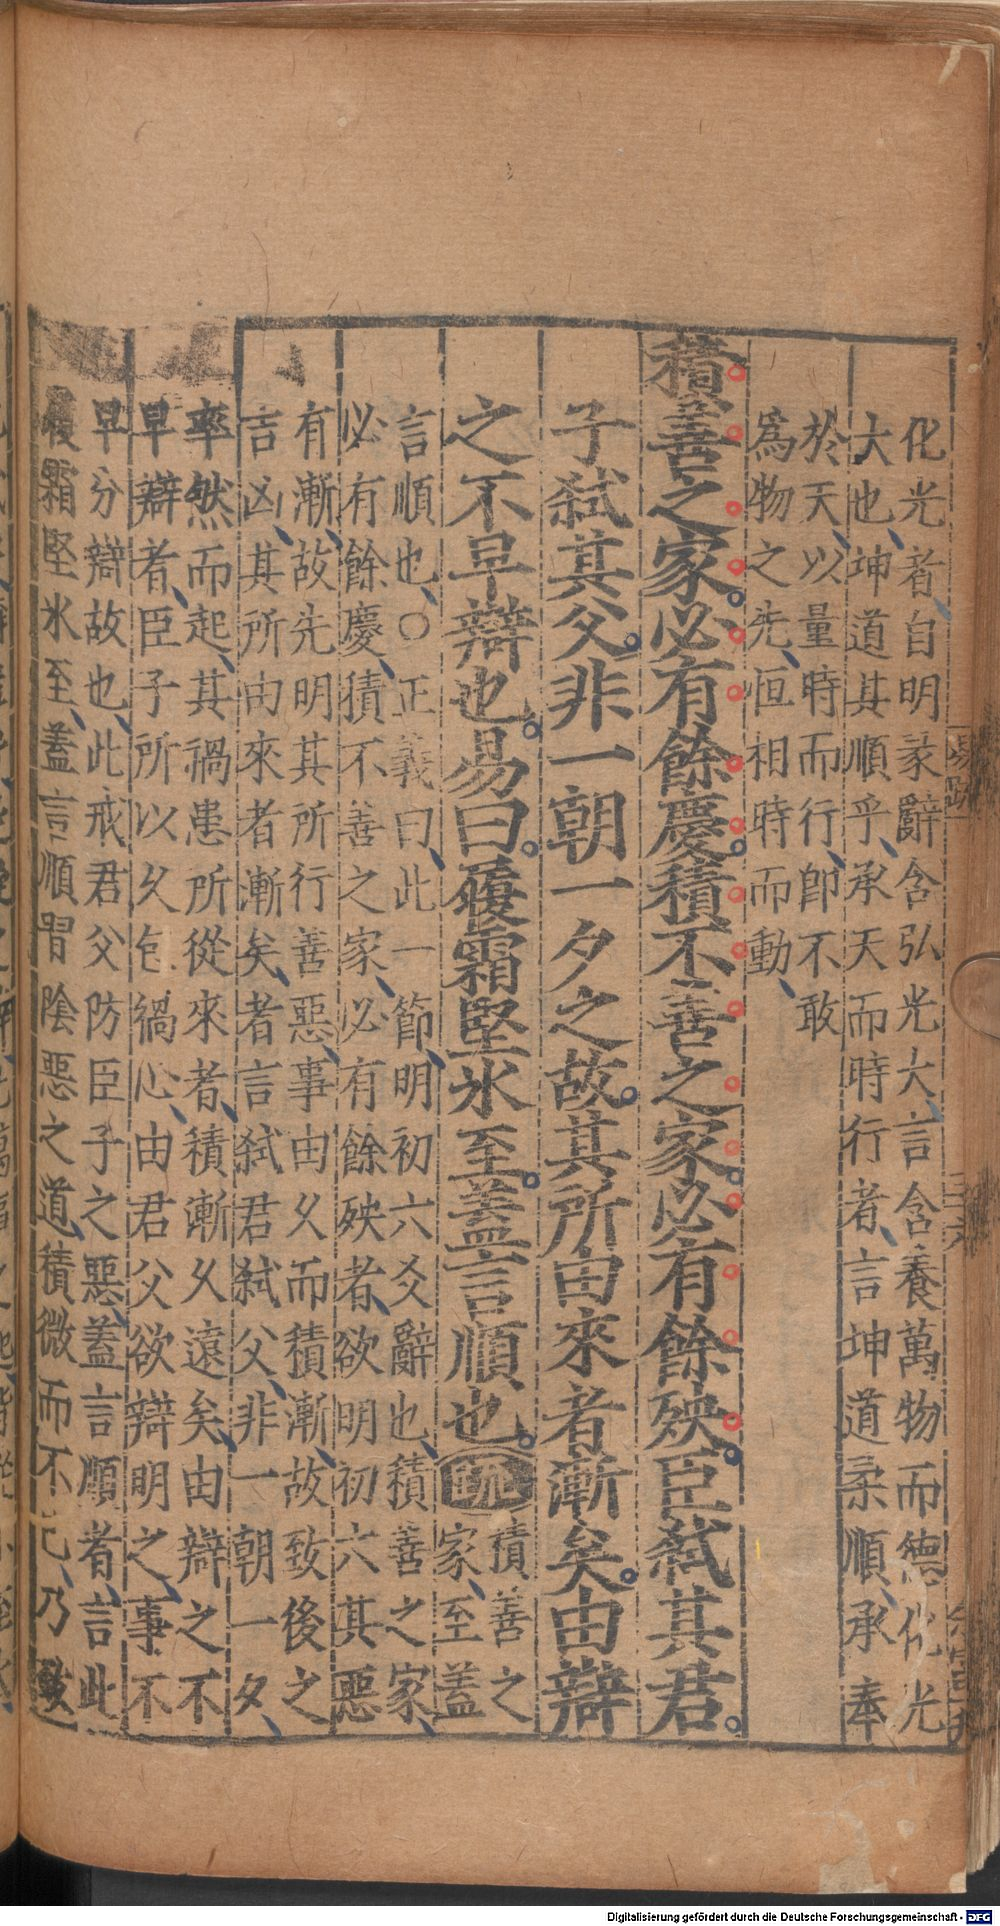 化光者自明彖辭含弘光大言含養萬物而德化光
大也坤道其順乎承天而時行者言坤道柔順承奉
於天以量時而行即不敢
爲物之先恒相時而動
積善之家必有餘慶積不善之家必有餘殃臣弑其君
子弑其父非一朝一夕之故其所由來者漸矣由辯
之不早辯也易曰履霜堅氷至蓋言順也疏
積善之
家至蓋
言順也○正義曰此一節明初六爻辭也積善之家
必有餘慶積不善之家必有餘殃者欲明初六其惡
有漸故先明其所行善惡事由久而積漸故致後之
吉凶其所由來者漸矣者言弑君弑父非一朝一夕
率然而起其禍患所從來者積漸久遠矣由辯之不
早辯者臣子所以久包禍心由君父欲辯明之事不
早分辯故也此戒君父防臣子之惡蓋言順者言此
履霜堅氷至蓋言順習陰惡之道積微而不已乃致
易疏一
三十六
Digitalisierung gefördert durch die Deutsche Forschungsgemeinschaft - DFG